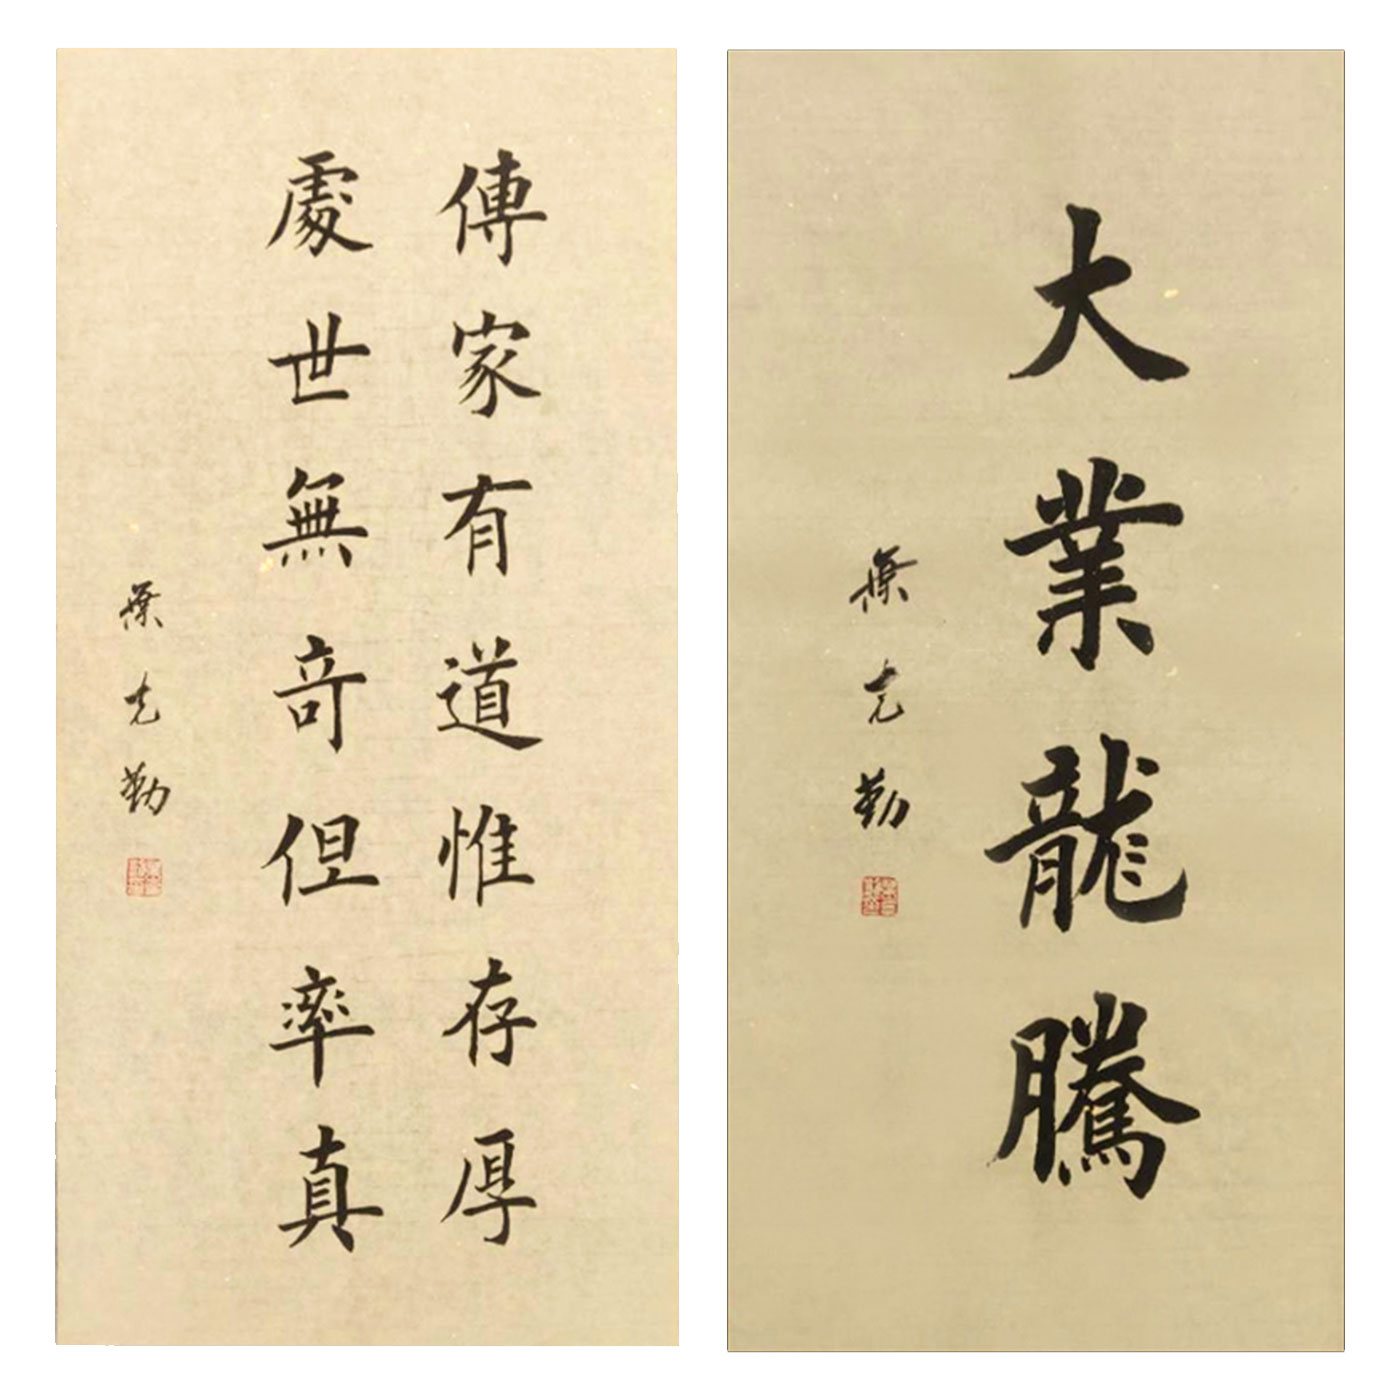 傳家有道惟存厚
處世無奇但率真
葉克勤
大業龍騰
葉克勤